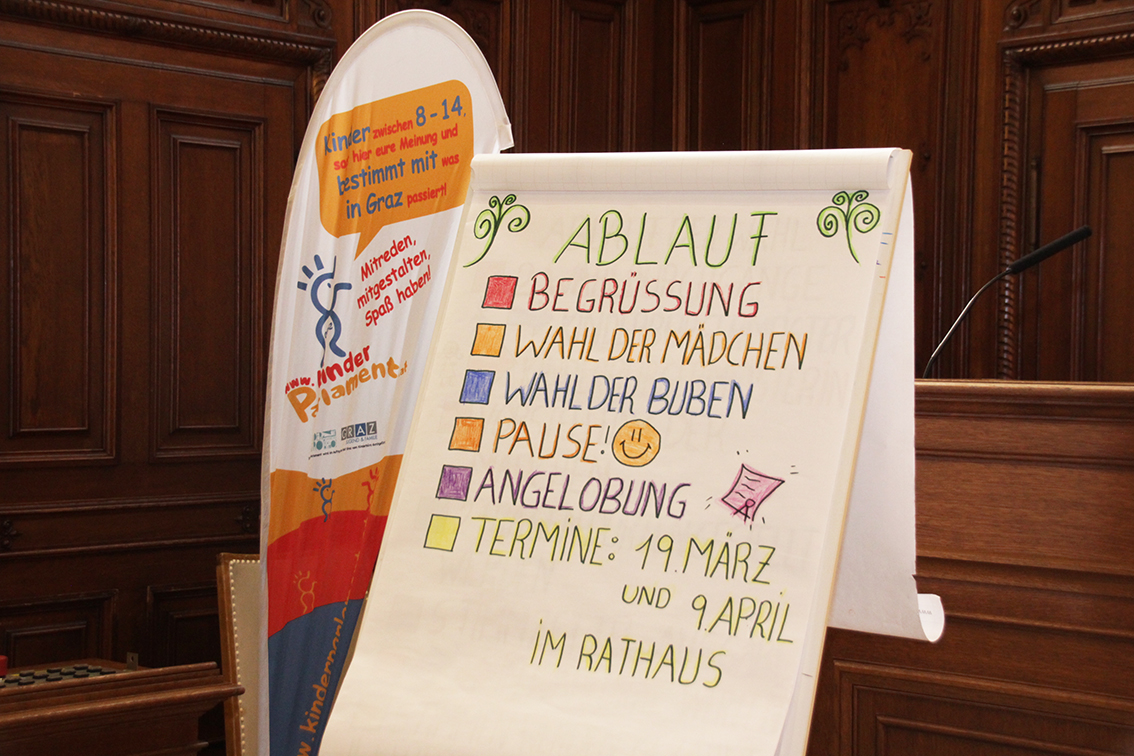 kinder zwischen 8-14,
sagt hier eure Meinung und
bestimmt mit was
in Graz passiert!
Mitreden,
mitgestalten,
Spaß haben!
www.kinder
Parlament.at
GRAZ
ABLAUF
BEGRÜSSUNG
WAHL DER MÄDCHEN
WAHL DER BUBEN
PAUSE!
ANGELOBUNG
TERMINE: 19. MÄRZ
UND 9. APRIL
IM RATHAUS